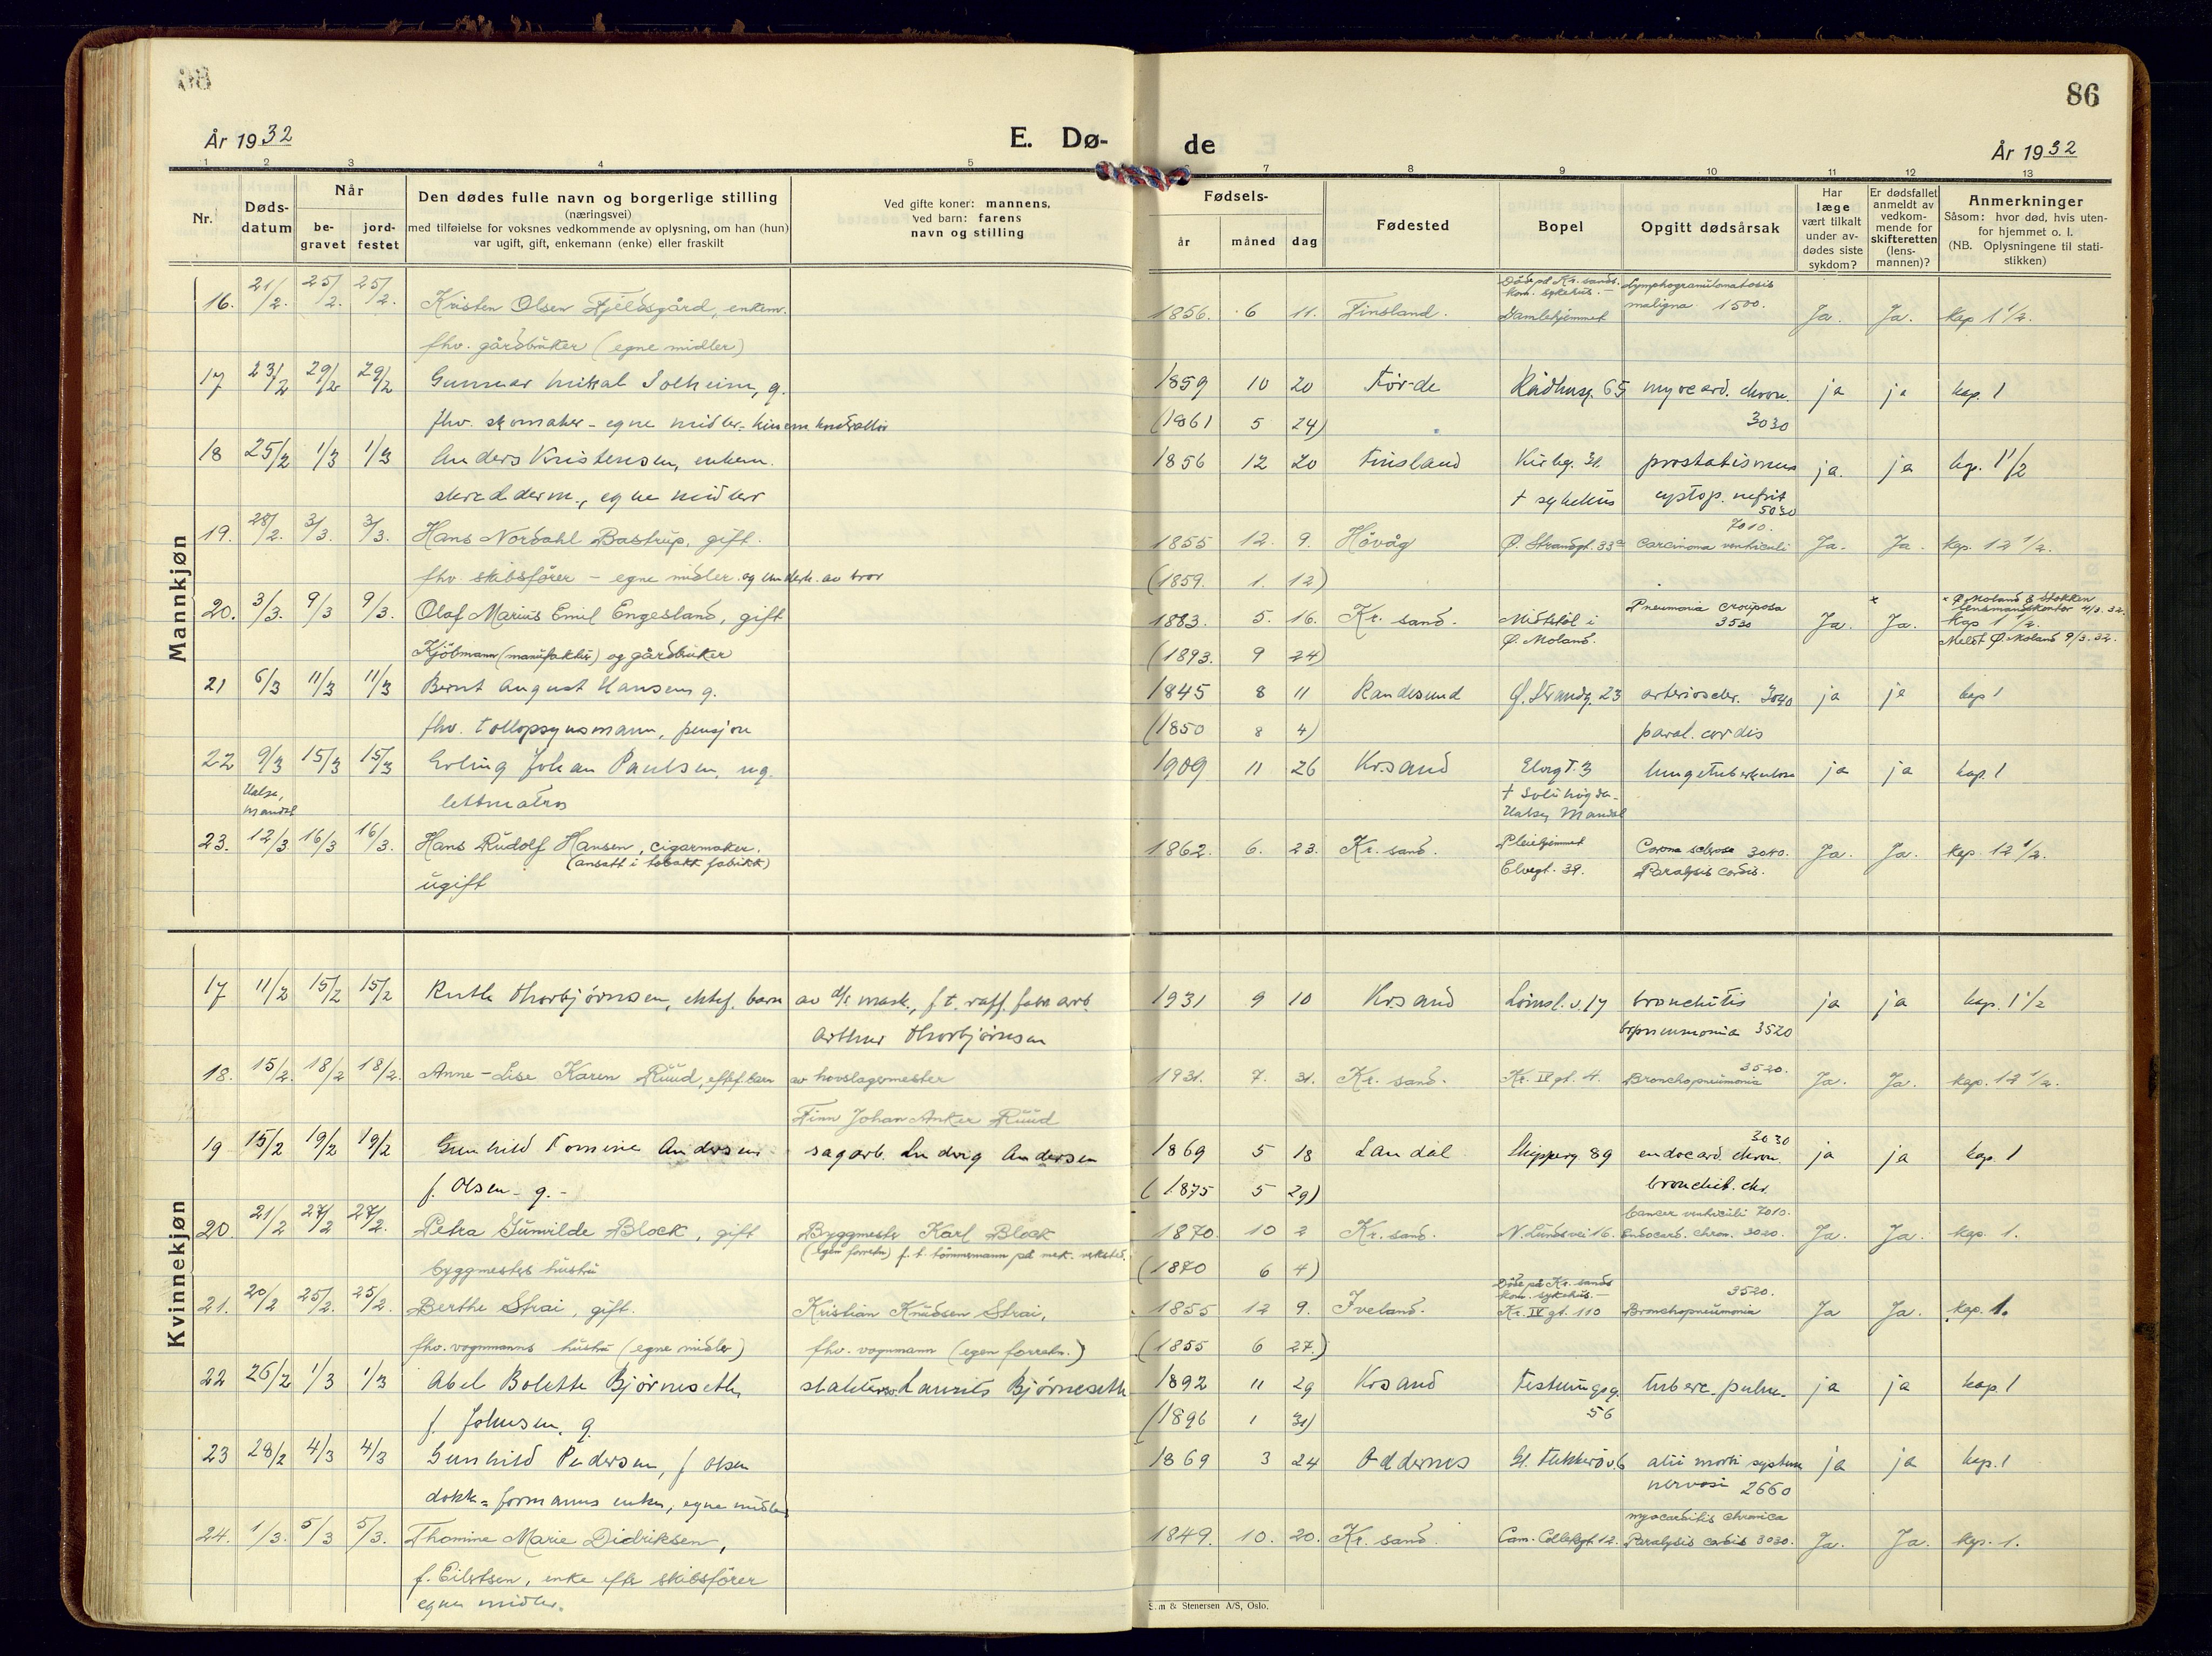 86
År 1932
E. Dø-
de
År 1932
1 2 3 4 5 6 7 8 9 10 11 12 13
Nr.
Døds-
datum
Når
be-
gravet
jord-
festet
Den dødes fulle navn og borgerlige stilling
(næringsvei)
med tilføielse for voksnes vedkommende av oplysning, om han (hun)
var ugift, gift, enkemann (enke) eller fraskilt
Ved gifte koner: mannens,
Ved barn: farens
navn og stilling
Fødsels-
år måned dag
Fødested
Bopel
Opgitt dødsårsak
Har
læge
vært tilkalt
under av-
dødes siste
sykdom?
Er dødsfallet
anmeldt av
vedkom-
mende for
skifteretten
(lens-
mannen)?
Anmerkninger
Såsom: hvor død, hvis uten-
for hjemmet o. l.
(NB. Oplysningene til stati-
stikken)
Mannkjøn
Død på Kr. sands. Lymphogranulomatosis
kom. sykehus. — maligna 1500.
16. 21/2. 25/2. 25/2. Kristen Olsen Fjeldsgård, enkem. 1856. 6 11. Finsland. Gamlehjemmet Ja. Ja. kap 1 1/2.
fhv. gårdbruker (egne midler)
17 23/2 29/2 29/2 Gunnar Mikal Solheim, g. 1859 10 20 Førde Rådhusg. 65 myocard. chron. ja ja kap. 1
fhv. skomaker - egne midler - kinem kontrollør (1861 5 24) 3030
18 25/2 1/3 1/3 Anders Kristensen, enkem. 1856 12 20 Finsland Kirkeg. 31. prostatismus ja. ja kap. 1 1/2
skredderm., egne midler † sykehus cystop. nefrit
5030
7010.
19. 28/2. 3/3. 3/3. Hans Nordahl Bastrup, gift. 1855 12. 9. Höväg Ø. Strandgt. 33a Carcinoma ventriculi Ja. Ja. kap. 12 1/2.
fhv. skibsfører - egne midler og underh. av bror (1859. 1. 12)
20. 3/3. 9/3 9/3. Olaf Marius Emil Engesland, gift 1883. 5. 16. Kr. sand. Midtstöl i Pneumonia crouposa Ja. × Ja. × Ø. Moland & Stokken
Ø. Moland. 3530 lensmandskontor 4/3.32.
kap 1 1/2.
Kjöbmann (manufaktur) og gårdbruker (1893. 9 24) Meldt Ø. Moland 9/3.32.
21 6/3 11/3 11/3 Bernt August Hansen g. 1845 8 11 Randesund Ø. Strandg. 23 arterioscler. 3040 ja ja kap 1
fhv. tollopsynsmann, pensjon (1850 8 4) paral. cordis
22 9/3 15/3 15/3 Erling Johan Paulsen, ug. 1909 11 26 Kr.sand Elvegt. 3 lungetuberkulose ja ja kap. 1
Halse, Mandal lettmatros † Solihøgda
Halse, Mandal
23. 12/3. 16/3 16/3. Hans Rudolf Hansen, cigarmaker. 1862. 6. 23. Kr. sand. Pleiehjemmet Corona sclerose 3040. Ja. Ja. kap. 12 1/2.
(ansatt i tobakk fabrikk) Elvegt. 39. Paralysis cordis.
ugift
Kvinnekjøn
17 11/2 15/2 15/2 Ruth Thorbjørnsen, ektef. barn av mask., f. t. raff. fabr arb. 1931 9 10 Kr.sand bronchitis ja ja kap. 1 1/2
Arthur Thorbjørnsen brpneumonia 3520
18. 15/2. 18/2 18/2. Anne-Lise Karen Ruud, ektef. barn av hovslagermester 1931. 7. 31. Kr. sand. Kr. IV gt. 4. Bronchopneumonia 3520. Ja. Ja. kap. 12 1/2.
Finn Johan Anker Ruud
19 15/2 19/2 19/2 Gunhild Tomine Andersen sagarb. Ludvig Andersen 1869 5 18 Laudal Skipperg 89 endocard. chron. 3030 ja ja kap. 1
f. Olsen - g. - (1875 5 29) bronchit. chr.
Cancer ventriculi 7010.
20. 21/2 27/2 27/2. Petra Gunvilde Block, gift Byggmester Karl Block 1870. 10 2 Kr. sand. N. Lundsvei 16. Endocard. chron. 3020. Ja. Ja. kap. 1.
(egen forretn) f. t. tömmermann på mek. verksted.
byggmesters hustru (1870 6 4)
Død på Kr. sands
kom. sykehus. — 3520.
21. 20/2 25/2. 25/2. Berthe Strai, gift. Kristian Knudsen Strai, 1855 12 9. Iveland. Kr. IV gt. 110 Bronchopneumonia Ja Ja. kap. 1.
fhv. vognmanns hustru (egne midler) fhv. vognmann (egen forretn.) (1855 6 27.)
22 26/2 1/3 1/3 Abel Bolette Bjørneseth, Laurits Bjørneseth 1892 11 29 Kr.sand Festningsg. tuberc. pulm. ja ja kap. 1
f. Johnsen, g. (1896 1 31) 56
23 28/2 4/3 4/3 Gunhild Pedersen, f Olsen 1869 3 24 Oddernes Gl. Flekkerøv. 6 alii morbi system ja ja kap. 1
dokk-formanns enke, egne midler nervosi 2660
myocarditis chronica
24. 1/3. 5/3 5/3. Thomine Marie Didriksen, 1849. 10. 20. Kr. sand. Cam. Collettgt. 12. Paralysis cordis 3030. Ja. Ja. kap. 1.
f. Eilertsen, enke efter skibsfører
egne midler.
& Stenersen A/S, Oslo.